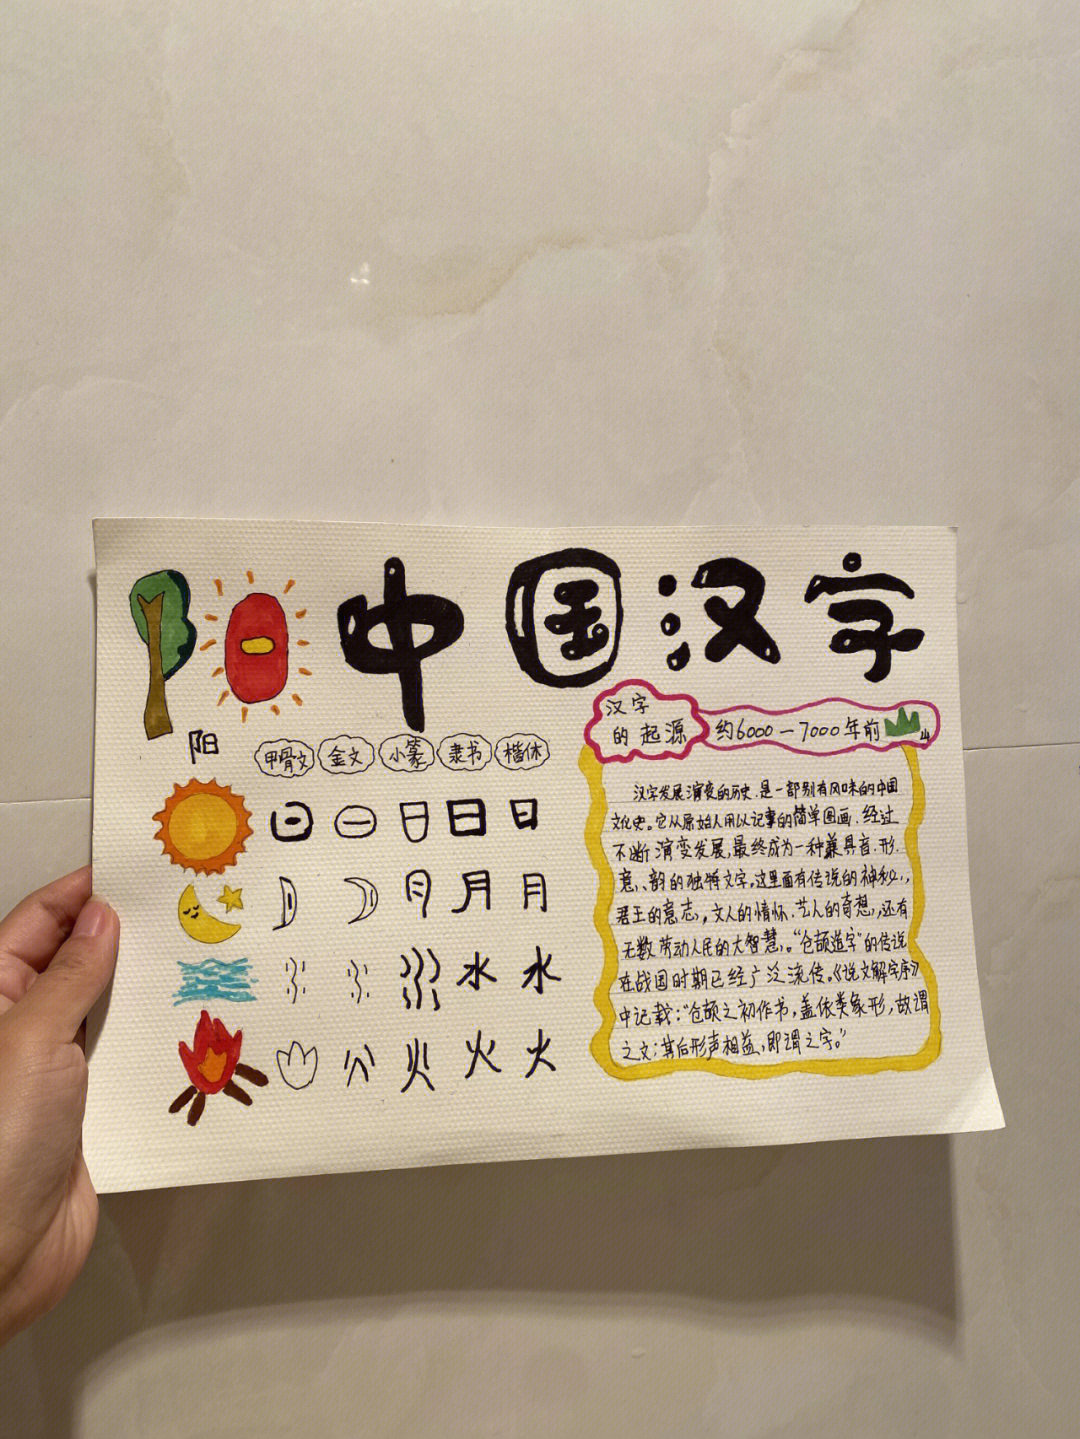 中国汉字
阳
甲骨文 金文 小篆 隶书 楷体
日 日 日 日 日
月 月 月 月 月
水 水 水 水 水
火 火 火 火 火
汉字
的起源
约6000—7000年前
山
汉字发展演变的历史,是一部别有风味的中国
文化史。它从原始人用以记事的简单图画,经过
不断演变发展,最终成为一种兼具音、形、
意、韵的独特文字。这里面有传说的神秘,
君王的意志,文人的情怀、艺人的奇想,还有
无数劳动人民的大智慧。“仓颉造字”的传说
在战国时期已经广泛流传。《说文解字序》
中记载:“仓颉之初作书,盖依类象形,故谓
之文;其后形声相益,即谓之字。”